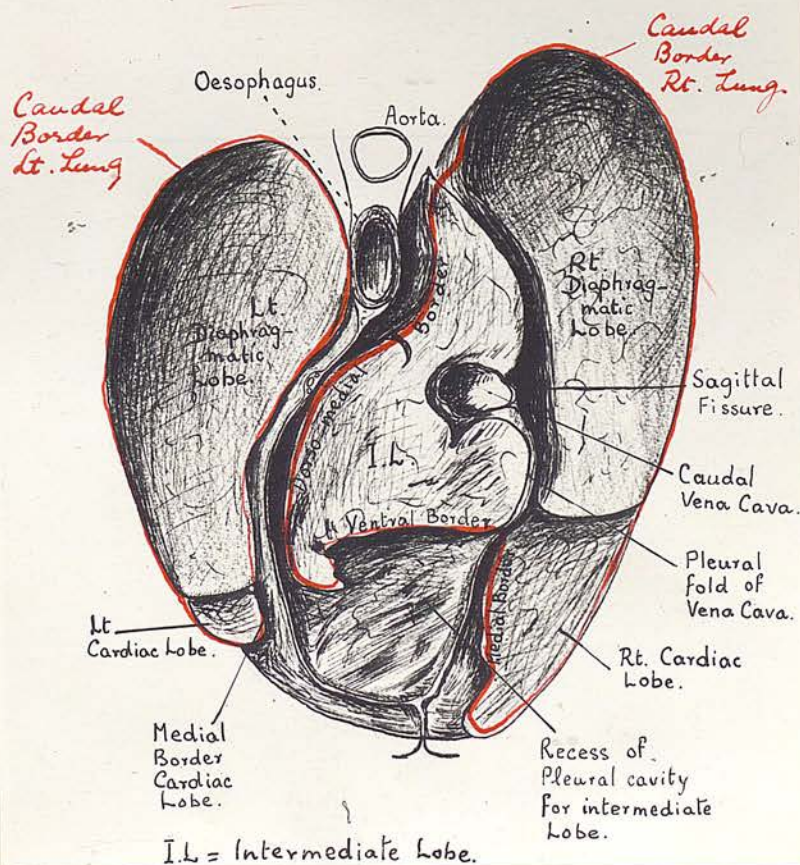 Caudal
Border
Rt. Lung
Oesophagus.
Aorta.
Caudal
Border
Lt. Lung
Lt.
Diaphrag-
matic
Lobe.
Rt
Diaphrag-
matic
Lobe.
Dorso-medial Border
Sagittal
Fissure.
I.L.
Caudal
Vena Cava.
Ventral Border
Pleural
fold of
Vena Cava.
Medial border
Lt
Cardiac Lobe.
Rt. Cardiac
Lobe.
Medial
Border
Cardiac
Lobe.
Recess of
Pleural cavity
for intermediate
Lobe.
I.L = Intermediate Lobe.